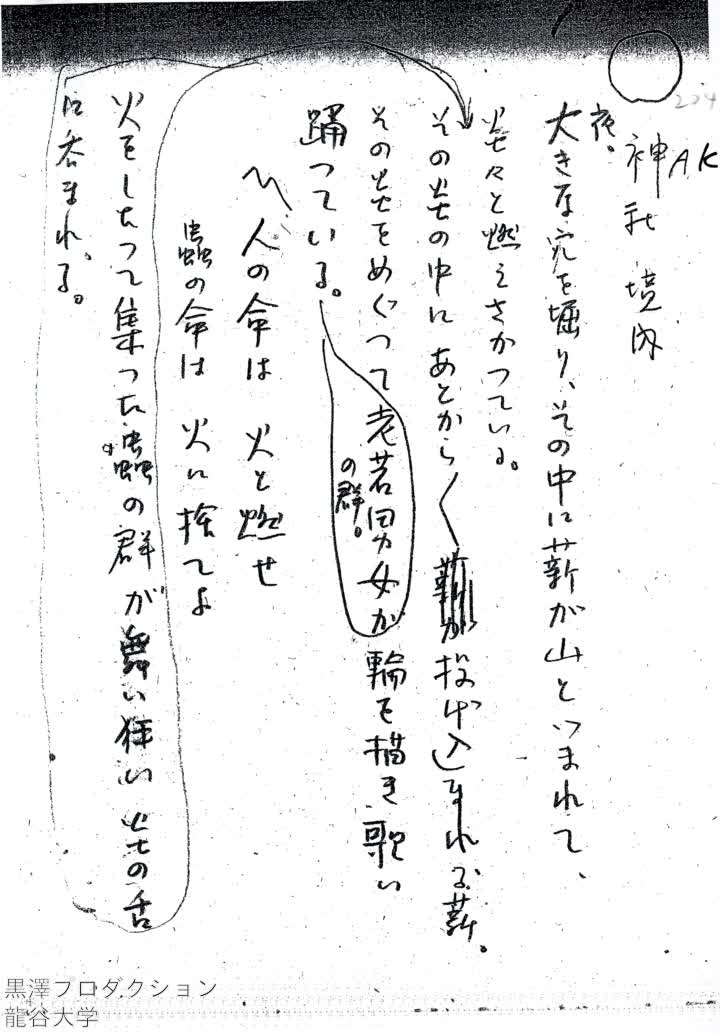 204
AK
神社 境内
夜。
大きな穴を堀り、その中に薪が山とつまれて、
炎々と燃えさかつている。
その炎の中にあとから〱投げ込まれる薪。
その炎をめぐつて老若男女が輪を描き歌い
の群。
踊つている。
〽人の命は 火と燃せ
蟲の命は 火に捨てよ
火をしたつて集つた蟲の群が舞い狂い 炎の舌
に呑まれる。
黒澤プロダクション
龍谷大学